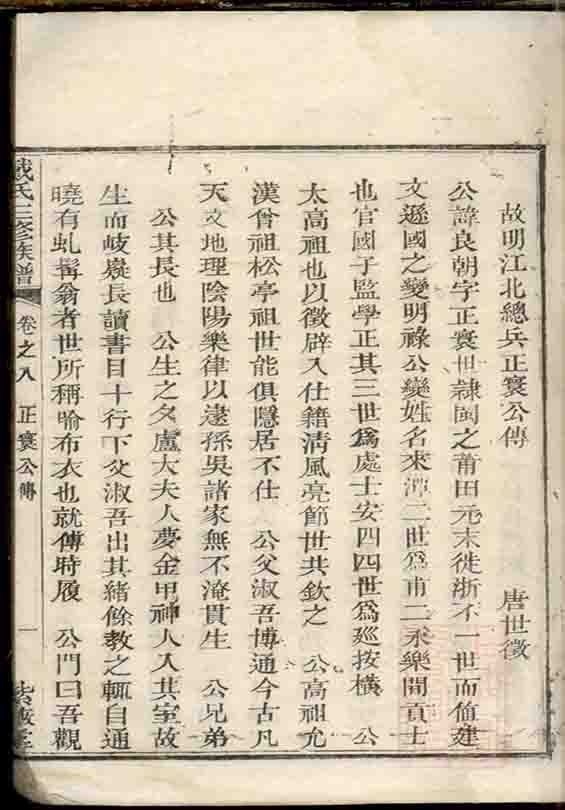 故明江北總兵正寰公傳　唐世徵
公諱良朝字正寰世隸閩之莆田元末徙浙不一世而值建
文遜國之變明祿公變姓名來漳二世爲甫二永樂間貢士
也官國子監學正其三世爲處士安四四世爲廵按橫　公
太高祖也以徵辟入仕籍清風亮節世共欽之　公高祖允
漢曾祖松亭祖世能俱隱居不仕　公父淑吾博通今古凡
天文地理陰陽樂律以逮孫吳諸家無不淹貫生　公兄弟
　公其長也　公生之夕盧大夫人夢金甲神人入其室故
生而岐嶷長讀書目十行下父淑吾出其緒餘教之輒自通
曉有虬髯翁者世所稱喻布衣也就傅時履　公門曰吾觀
戴氏三修族譜　卷之八　正寰公傳　一